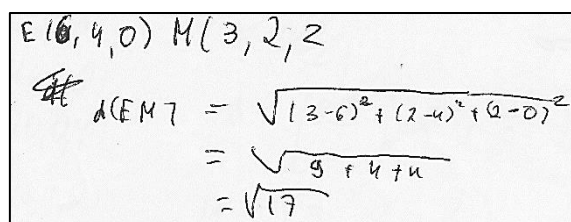 E(6, 4, 0) M(3, 2, 2
d(EM) = √(3-6)² + (2-4)² + (2-0)²
= √9 + 4 + 4
= √17